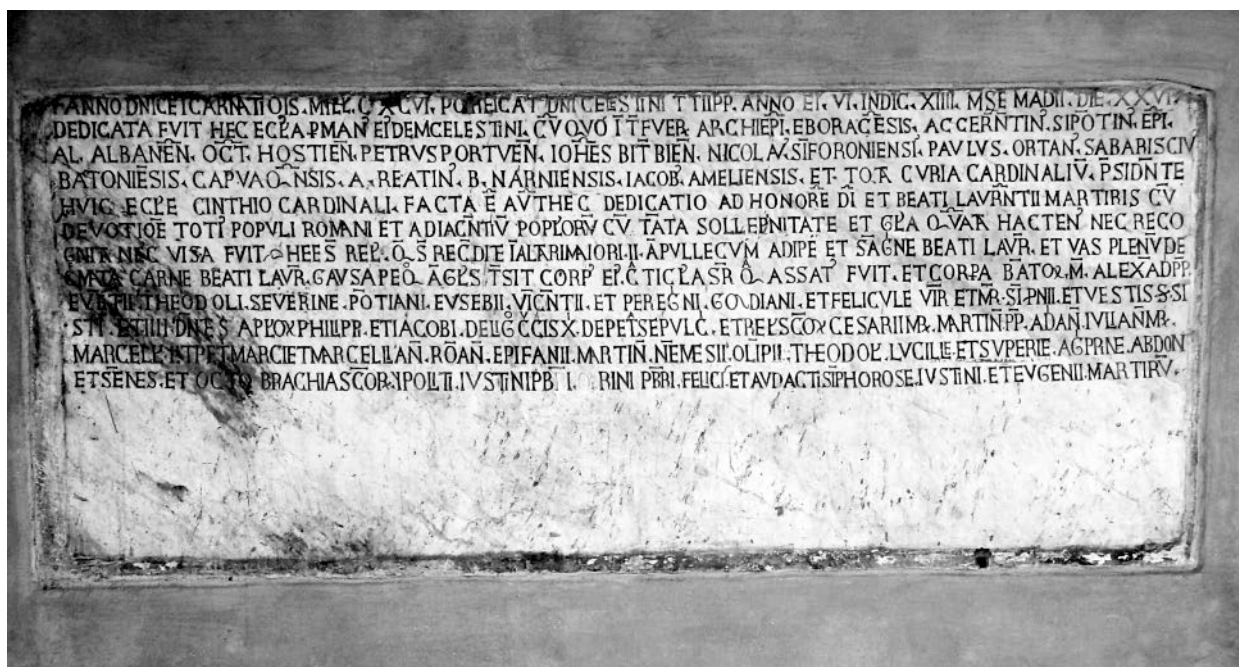 ANNO DNICE ICARNATIOIS. MILL. C XCVI. POTEICAT DNI CELESTINI TTII PP. ANNO EI. VI. INDIC. XIIII. MSE MADII. DIE. XXVI.
DEDICATA FVIT HEC ECLA P MAN EIDEM CELESTINI. CV QVO ITFVER ARCHIEPI. EBORACESIS. ACCERNTIN. SIPOTIN. EPI.
AL. ALBANEN. OCT. HOSTIEN. PETRVS PORTVEN. IOHES BITBIEN. NICOLAV. SIFORONIENSI. PAVLVS. ORTAN. SABARISCIV
BATONIESIS. CAPVAQNSIS. A. REATIN. B. NARNIENSIS. IACOB. AMELIENSIS. ET. TOTA CVRIA CARDINALIV. PSIDNTE
HVIC ECLE CINTHIO CARDINALI. FACTA E AVT HEC DEDICATIO AD HONORE DI ET BEATI LAVRNTII MARTIRIS CV
DEVOTIOE TOTI POPVLI ROMANI ET ADIACNTIV POPLORV CV TATA SOLLEPNITATE ET GLA Q VAR HACTEN NEC RECO
GNITA NEC VISA FVIT HEE S REL. Q. S RECDITE I ALTARI MAIORI. II. APVLLE CVM ADIPE ET SAGNE BEATI LAVR. ET VAS PLENV DE
CARNE BEATI LAVR. GAVSAPE Q AGLS TSIT CORP EI. CTICLA SR Q ASSAT FVIT. ET CORPA BATOR. M. ALEXADPP.
EVETII. THEODOLI. SEVERINE. POTIANI. EVSEBII. VICNTII. ET PEREGNI. GODIANI. ET FELICVLE VIR ET MR. SIPNII. ET VESTIS S. SI
STI. ET IIII DNES APLOR PHILIPP. ET IACOBI. DE LIG CCIS X. DE PET SEPVLC. ET RELS SCOR CESARII MR. MARTIN. PP. ADAN. IVLIAN MR.
MARCELL. ET MARCI ET MARCELLIAN. ROAN. EPIFANII. MARTIN. NEMESII. OLIPII. THEODOL. LVCILLE. ET SVPERIE. AGPRNE. ABDON
ET SENES. ET OCTO BRACHIA SCOR. IPOLITI. IVSTINI PB RINI PBRI. FELICI. ET AVDACTI SIPHOROSE. IVSTINI. ET EVGENII. MARTIRV.